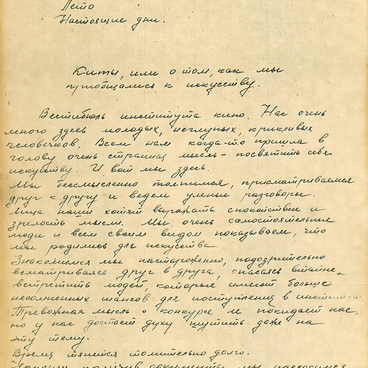 Лето
Настоящие дни.
Киты, или о том, как мы
приобщались к искусству.
Вестибюль института кино. Нас очень
много здесь молодых, неглупых, крикливых
человечков. Всем нам когда-то пришла в
голову очень странная мысль – посвятить себя
искусству. И вот мы здесь.
Мы бессмысленно толпимся, присматриваемся
друг к другу и ведем умные разговоры.
Лица наши хотят выражать спокойствие и
зрелость мысли. Мы очень самостоятельные
люди и всем своим видом показываем, что
мы родились для искусства.
Знакомимся мы настороженно, подозрительно
всматриваясь друг в друга, опасаясь втайне
встретить людей, которые имеют больше
несомненных шансов для поступления в институт.
Тревожная мысль о конкурсе не покидает нас,
но у нас достает духу шутить даже на
эту тему.
Время тянется томительно долго.
мы